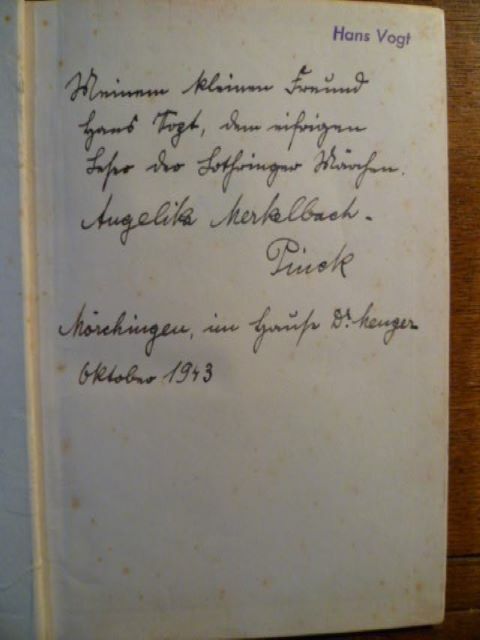 Hans Vogt
Meinem kleinen Freund
Hans Vogt, dem eifrigen
Leser der Lothringer Märchen.
Angelika Merkelbach-
Pinck
Mörchingen, im Hause Dr. Menger
Oktober 1943